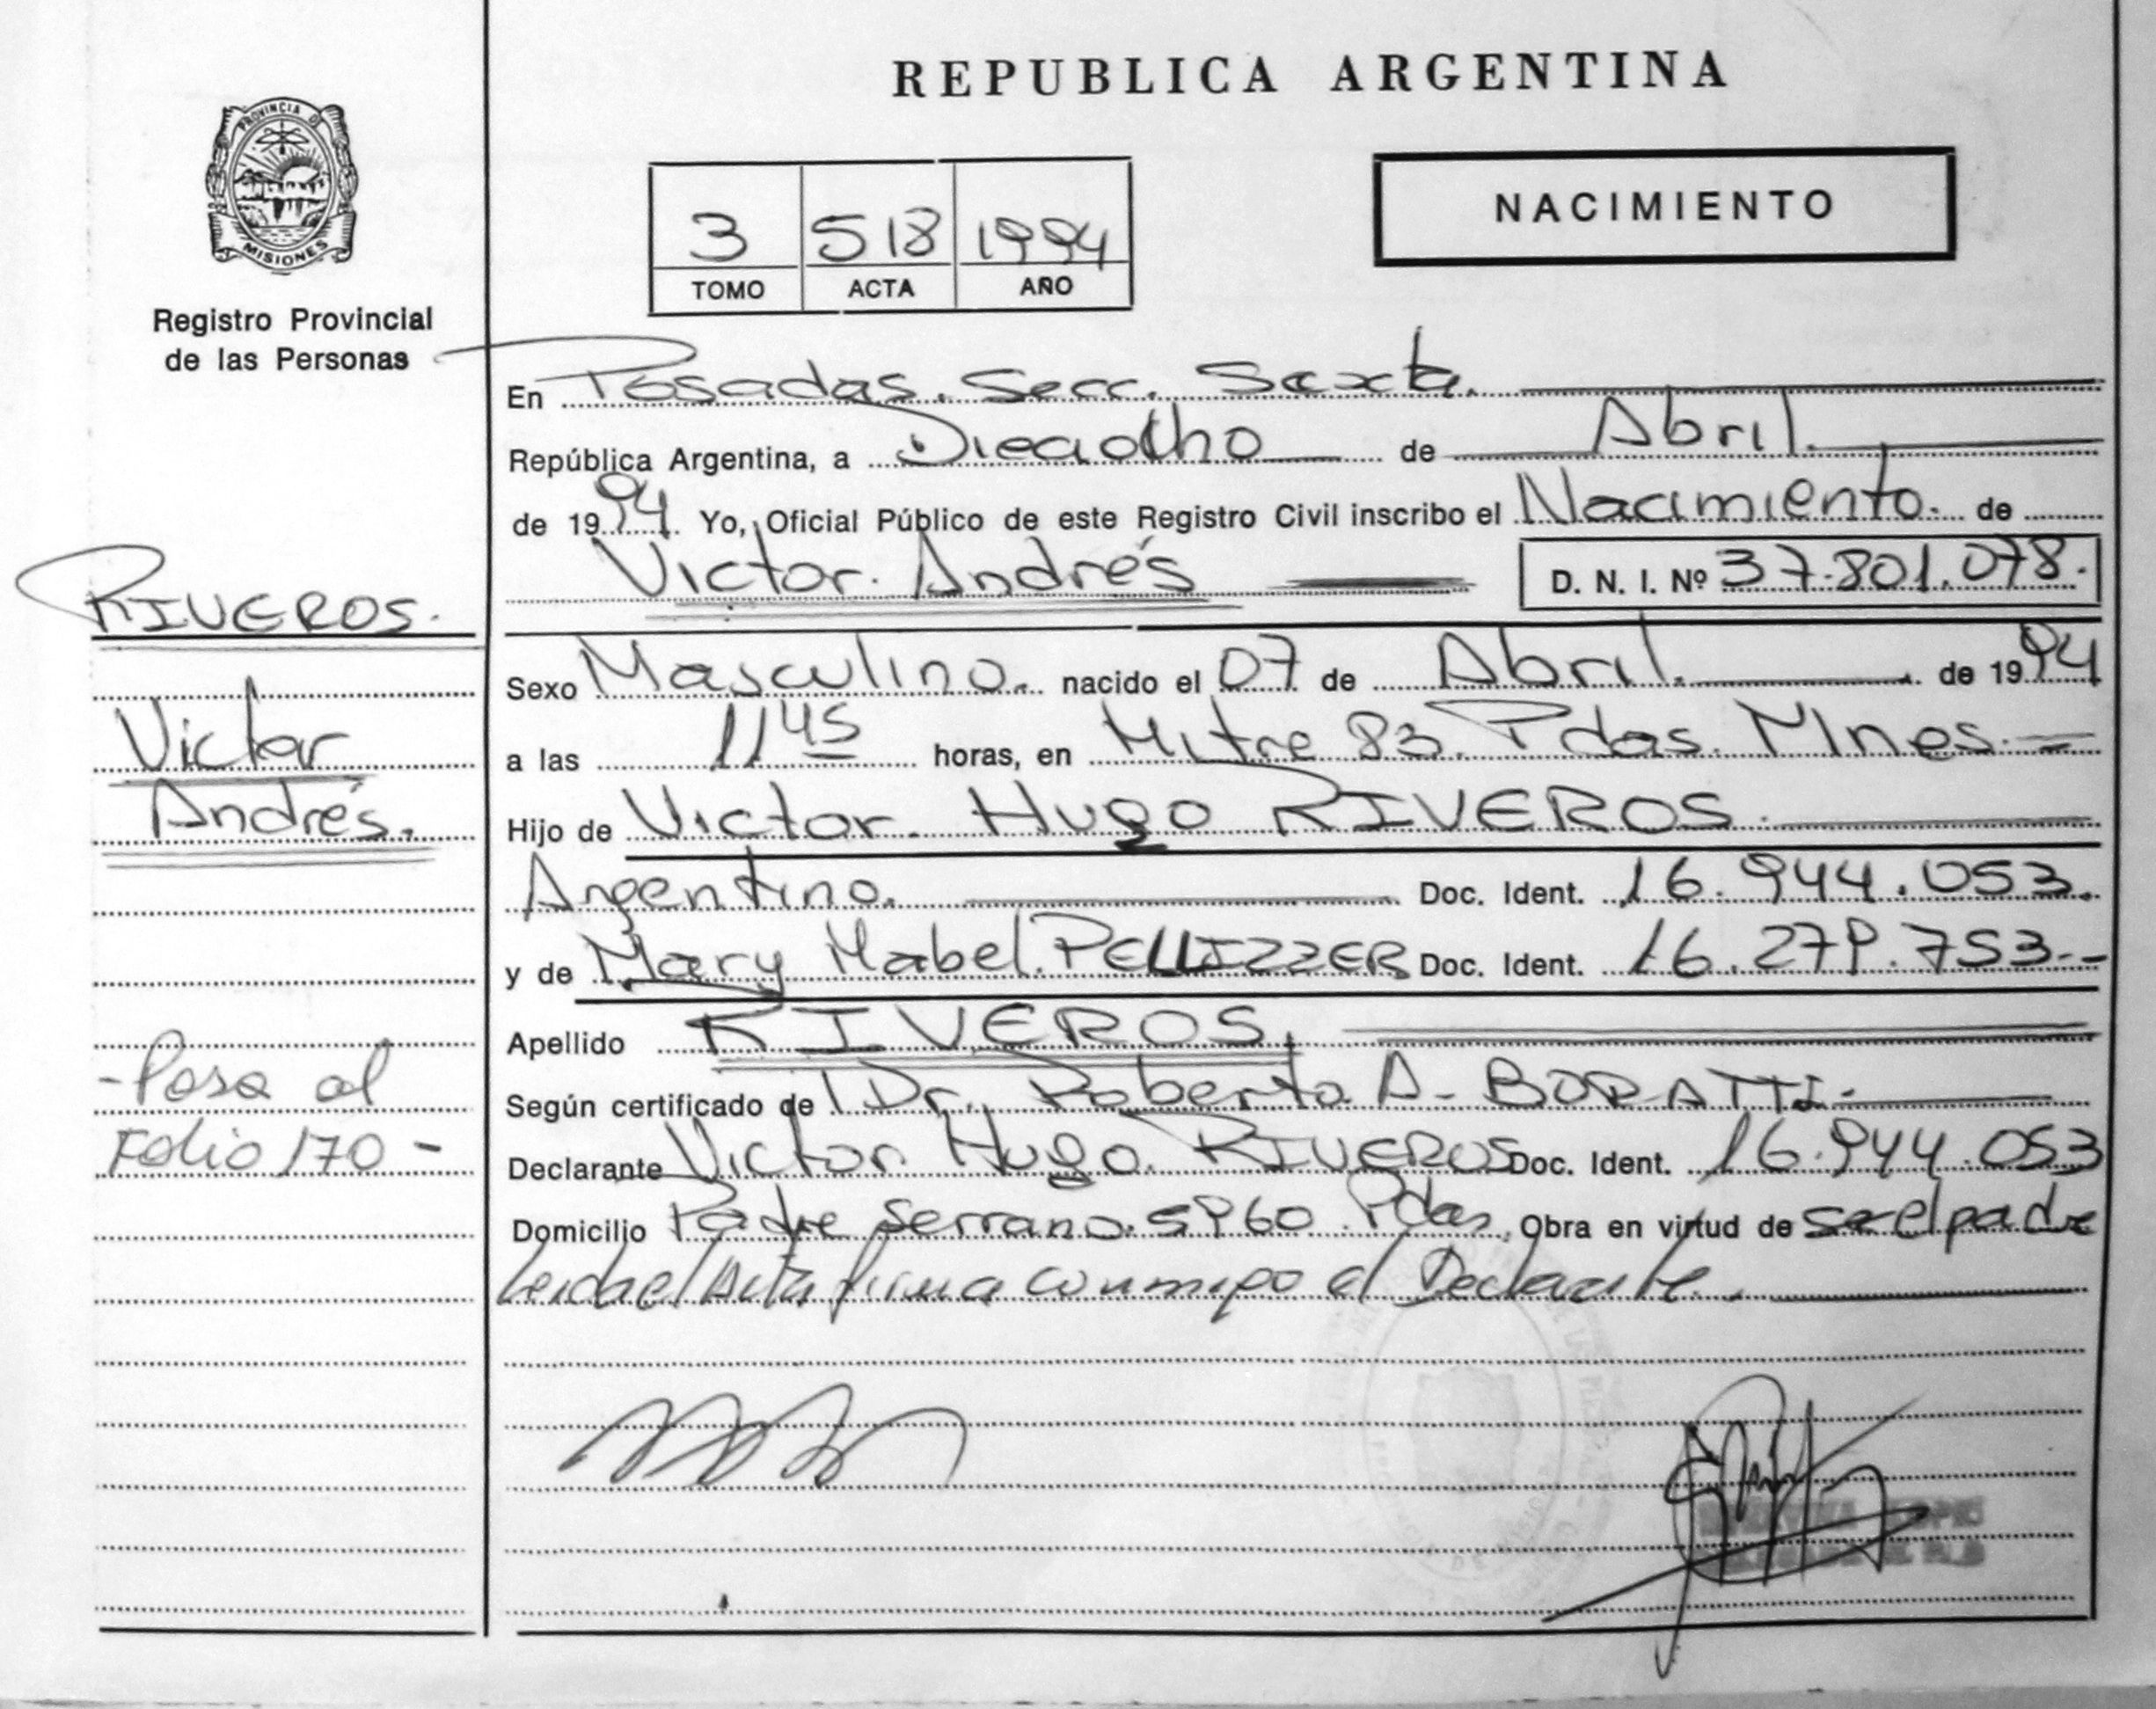 REPUBLICA ARGENTINA
PROVINCIA D
MISIONES
Registro Provincial
de las Personas
3 518 1994
TOMO ACTA AÑO
NACIMIENTO
En Posadas. Secc. Sexta.
República Argentina, a Dieciocho de Abril.
de 1994 Yo, Oficial Público de este Registro Civil inscribo el Nacimiento. de
Victor. Andrés D. N. I. Nº 37.801.078.
RIVEROS.
Victor
Andrés.
Sexo Masculino. nacido el 07 de Abril. de 1994
a las 11 45 horas, en Mitre 83. Pdas. Mnes.
Hijo de Victor. Hugo RIVEROS.
Argentino. Doc. Ident. 16.944.053.
y de Mary Mabel. PELLIZZER Doc. Ident. 16.279.753.-
Apellido RIVEROS.
Según certificado de Dr. Roberto A. BORATTI.
Declarante Victor Hugo. RIVEROS Doc. Ident. 16.944.053
Domicilio Padre Serrano. 5960. Pdas, Obra en virtud de ser el padre
Leida el Acta firma conmigo el Declarante.
-Pasa al
Folio 170-